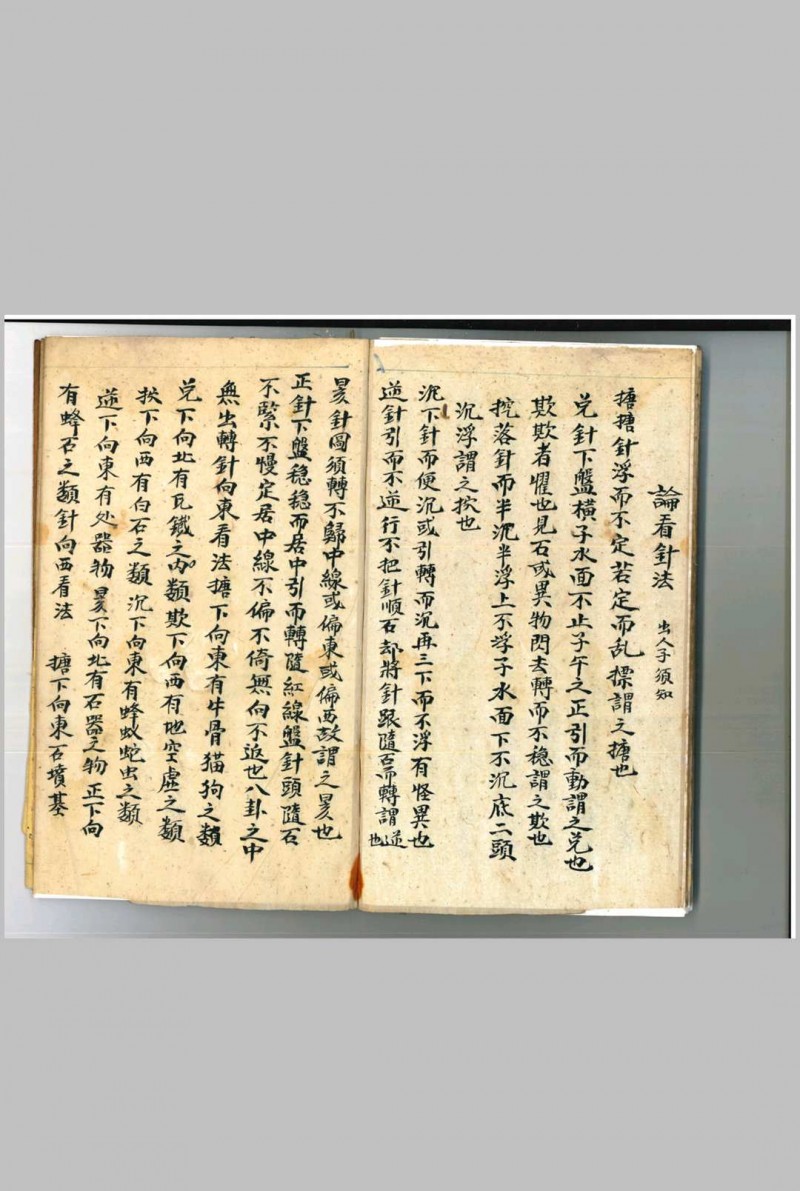 論看針法 出人子須知
搪搪針浮而不定若定而乱摽謂之搪也
兑針下盤橫子水面不止子午之正引而動謂之兑也
欺欺者懼也見石或異物閃去轉而不稳謂之欺也
挖落針而半沉半浮上不浮子水面下不沉底二頭
沉浮謂之挖也
沉下針而便沉或引轉而沉再三下而不浮有怪異也
逆針引而不逆行不把針順石却將針跟隨石而轉謂逆也
針圓須轉不歸中線或偏東或偏西故謂之 也
正針下盤稳稳而居中引而轉隨紅線盤針頭隨石
不緊不慢定居中線不偏不倚無向不返也八卦之中
無出轉針向東看法搪下向東有牛骨猫狗之類
兑下向北有瓦鐵之内類欺下向西有地空虛之類
挖下向西有白石之類 沉下向東有蜂蟻蛇虫之類
逆下向東有处器物 下向北有石器之物正下向
有蜂石之類針向西看法 搪下向東石墳基